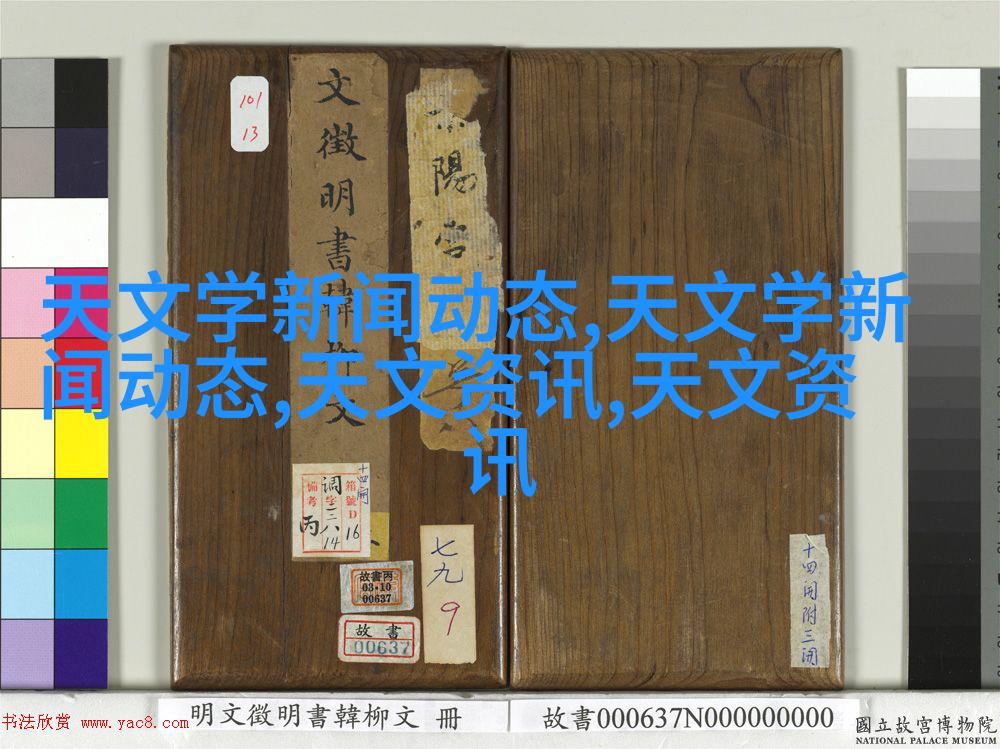 天文学新闻动态,天文学新
闻动态,天文资讯,天文资
讯
101
13
文徵明書韓柳文
陽宮
十四開
箱號D16
调字三八14
備考丙
故書丙
03·10
00637
故書
00637
七九
9
十四開附三開
明文徵明書韓柳文 冊
故書000637N000000000
书法欣赏 www.yac8.com
國立故宮博物院
NATIONAL PALACE MUSEUM